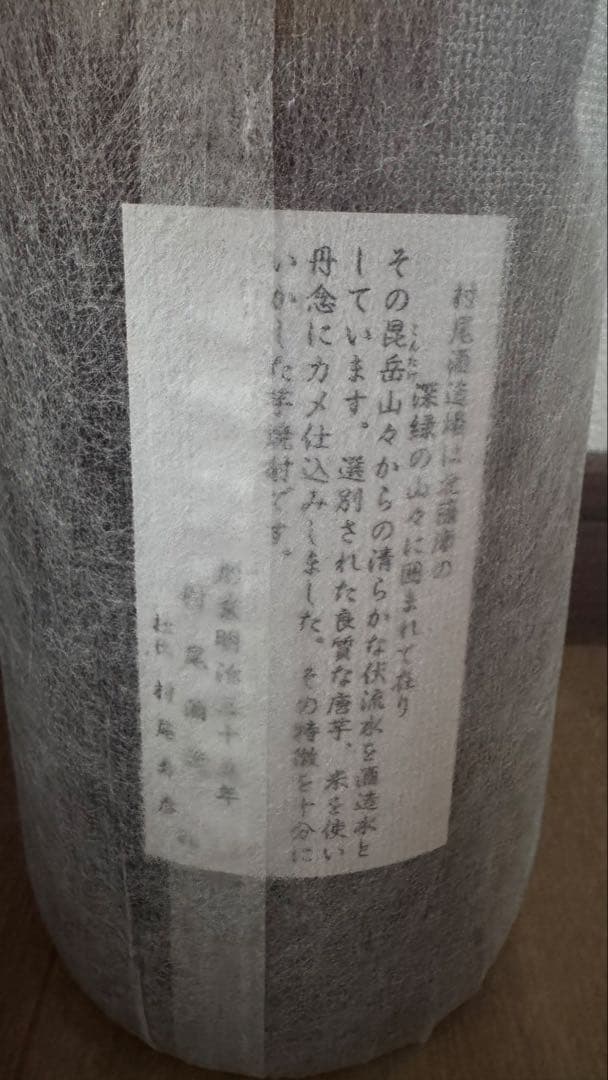 村尾酒造場は北薩摩の
深緑の山々に囲まれて在り
その昆岳山々からの清らかな伏流水を酒造水と
こんたけ
しています。選別された良質な唐芋、米を使い
丹念にカメ仕込みしました。その特徴を十分に
いかした芋焼酎です。
創業明治三十五年
村尾酒造
杜氏 村尾寿彦